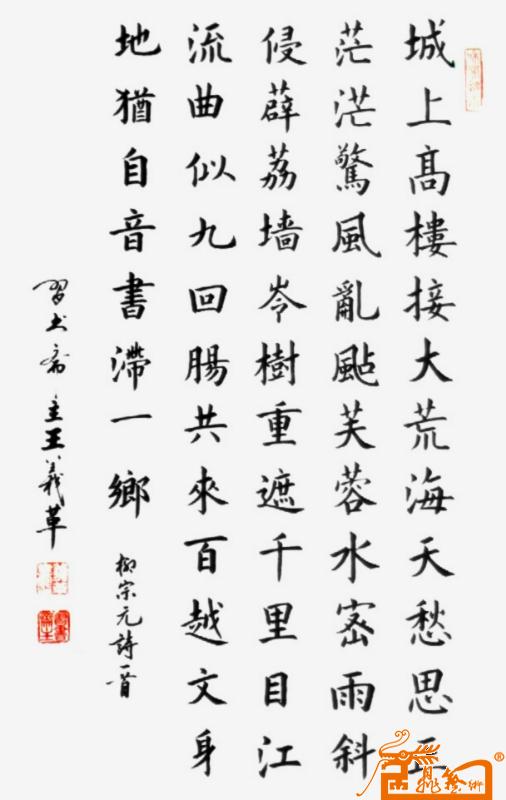 城上高樓接大荒海天愁思正
茫茫驚風亂颭芙蓉水密雨斜
侵薜荔墙岑樹重遮千里目江
流曲似九回腸共來百越文身
地猶自音書滯一鄉
柳宗元詩一首
習書齋主王義草